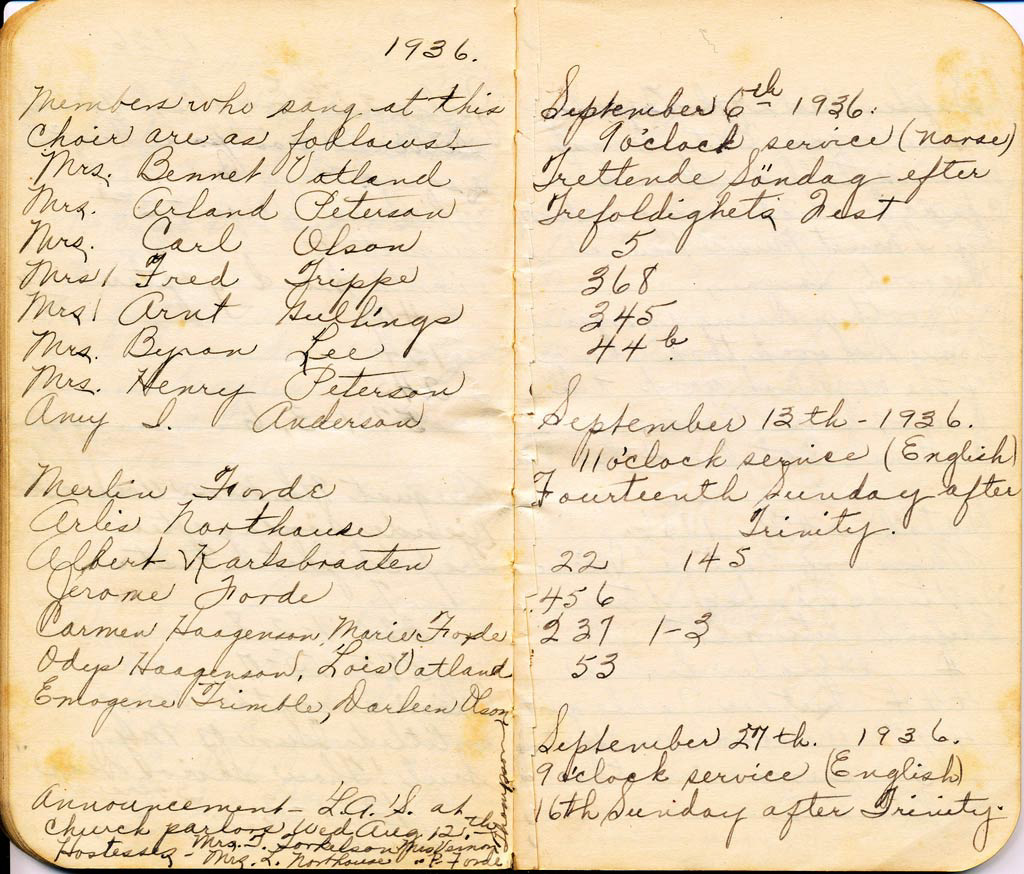 1936.
Members who sang at this
choir are as follows:-
Mrs. Bennet Vatland
Mrs. Arland Peterson
Mrs. Carl Olson
Mrs. Fred Trippe
Mrs. Arnt Gullings
Mrs. Byron Lee
Mrs. Henry Peterson
Amy I. Anderson
Merlin Forde
Arlis Northouse
Albert Karlsbraaten
Jerome Forde
Carmen Haagenson, Marie Forde
Odys Haagenson, Lois Vatland
Emogene Trimble, Darleen Olson
Announcement - L.A.S. at
church parlors Wed Aug 12.th
Hostesses - Mrs. T. Torkelson Mrs Vernon Thompson
Mrs. L. Northouse " P. Forde
September 6th 1936.
9 o'clock service (Norse)
Trettende Söndag efter
Trefoldighets Fest
5
368
345
44 b
September 13th - 1936.
11 o'clock service (English)
Fourteenth Sunday after
Trinity.
22 145
456
237 1-3
53
September 27th. 1936.
9 o'clock service (English)
16th Sunday after Trinity.